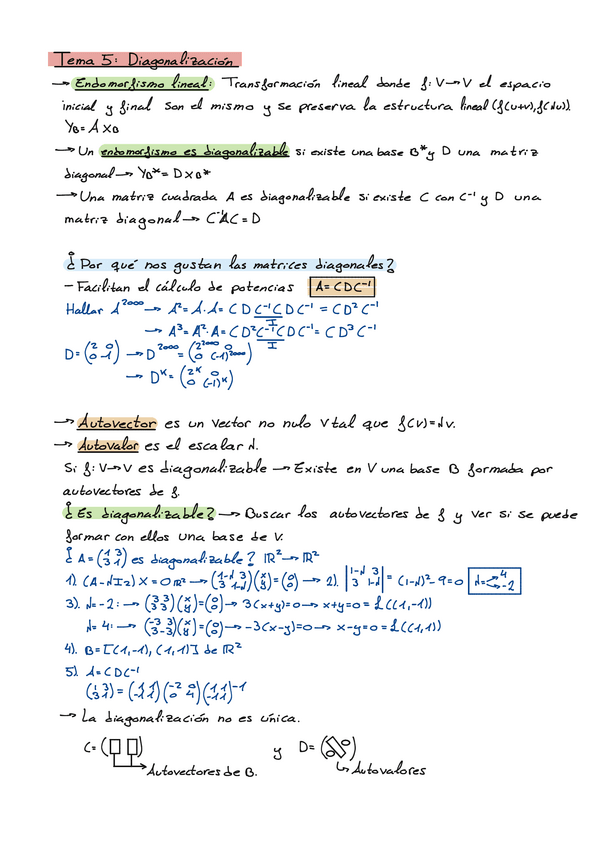 Tema 5: Diagonalización
→ Endomorfismo lineal: Transformación lineal donde f: V→V el espacio
inicial y final son el mismo y se preserva la estructura lineal (f(u+v), f(λu)).
Y_B = A X_B
→ Un entomorfismo es diagonalizable si existe una base B* y D una matriz
diagonal → Y_B* = D X_B*
→ Una matriz cuadrada A es diagonalizable si existe C con C⁻¹ y D una
matriz diagonal → C⁻¹AC = D
¿Por qué nos gustan las matrices diagonales?
- Facilitan el cálculo de potencias A = CDC⁻¹
Hallar A²⁰⁰⁰ → A² = A·A = C D C⁻¹ C D C⁻¹ = C D² C⁻¹
I
→ A³ = A²·A = C D² C⁻¹ C D C⁻¹ = C D³ C⁻¹
I
D = (2 0; 0 -1) → D²⁰⁰⁰ = (2²⁰⁰⁰ 0; 0 (-1)²⁰⁰⁰)
→ Dᴷ = (2ᴷ 0; 0 (-1)ᴷ)
→ Autovector es un vector no nulo v tal que f(v) = λv.
→ Autovalor es el escalar λ.
Si f: V→V es diagonalizable → Existe en V una base B formada por
autovectores de f.
¿Es diagonalizable? → Buscar los autovectores de f y ver si se puede
formar con ellos una base de V.
¿A = (1 3; 3 1) es diagonalizable? ℝ² → ℝ²
1). (A - λI₂) X = 0 ℝ² → (1-λ 3; 3 1-λ)(x; y) = (0; 0) → 2). |1-λ 3; 3 1-λ| = (1-λ)² - 9 = 0 λ = 4 -2
3). λ = -2: → (3 3; 3 3)(x; y) = (0; 0) → 3(x+y) = 0 → x+y = 0 = L((1,-1))
λ = 4: → (-3 3; 3 -3)(x; y) = (0; 0) → -3(x-y) = 0 → x-y = 0 = L((1,1))
4). B = [(1,-1), (1,1)] de ℝ²
5). A = CDC⁻¹
(1 3; 3 1) = (1 1; -1 1)(-2 0; 0 4)(1 1; -1 1)⁻¹
→ La diagonalización no es única.
C = ( ) y D = (0 0)
Autovectores de B. Autovalores